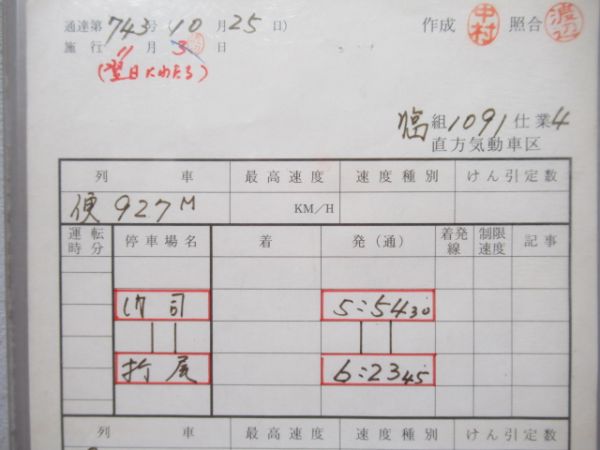 通達第743号(10月25日) 作成 中村 照合 渡辺
施行 11月3日
(翌日にわたる)
臨組1091仕業4
直方気動車区
列車 最高速度 速度種別 けん引定数
便927M KM/H
運転時分 停車場名 着 発(通) 着発線 制限速度 記事
門司 5:54 30
折尾 6:23 45
列車 最高速度 速度種別 けん引定数